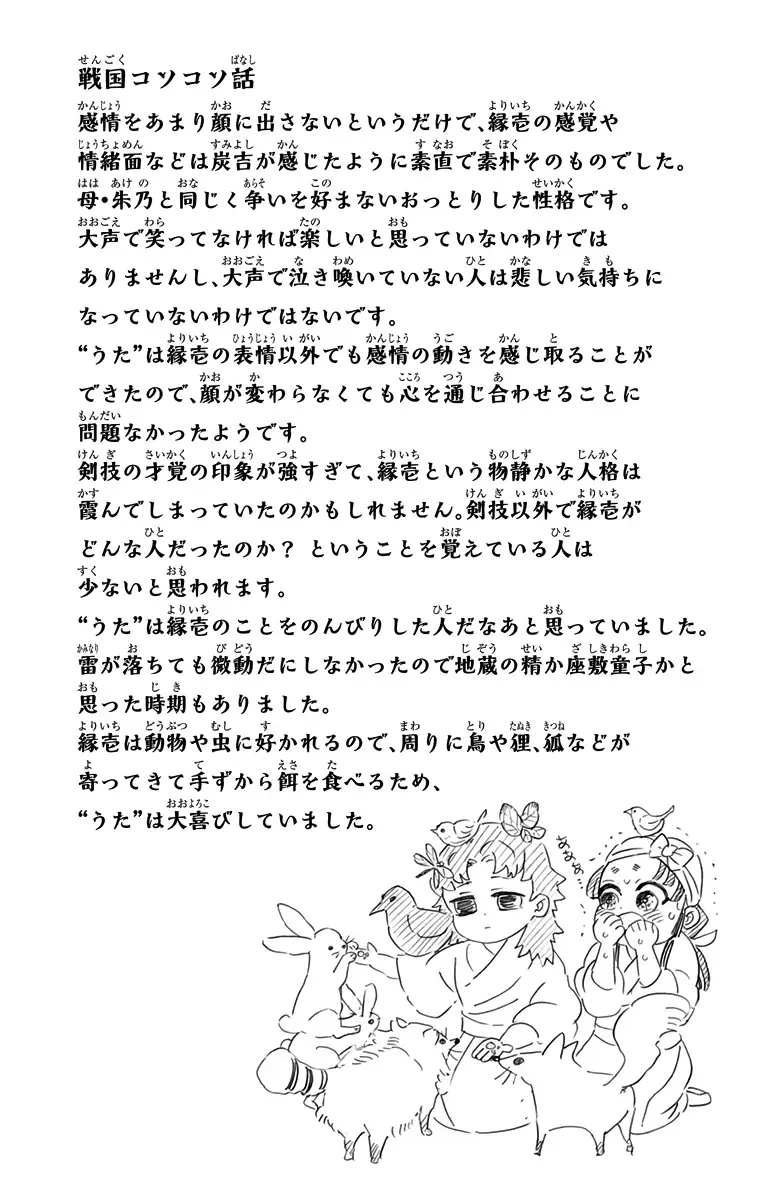 戦国コソコソ話
感情をあまり顔に出さないというだけで、縁壱の感覚や
情緒面などは炭吉が感じたように素直で素朴そのものでした。
母・朱乃と同じく争いを好まないおっとりした性格です。
大声で笑ってなければ楽しいと思っていないわけでは
ありませんし、大声で泣き喚いていない人は悲しい気持ちに
なっていないわけではないです。
“うた”は縁壱の表情以外でも感情の動きを感じ取ることが
できたので、顔が変わらなくても心を通じ合わせることに
問題なかったようです。
剣技の才覚の印象が強すぎて、縁壱という物静かな人格は
霞んでしまっていたのかもしれません。剣技以外で縁壱が
どんな人だったのか？ ということを覚えている人は
少ないと思われます。
“うた”は縁壱のことをのんびりした人だなあと思っていました。
雷が落ちても微動だにしなかったので地蔵の精か座敷童子かと
思った時期もありました。
縁壱は動物や虫に好かれるので、周りに鳥や狸、狐などが
寄ってきて手ずから餌を食べるため、
“うた”は大喜びしていました。
あああ…